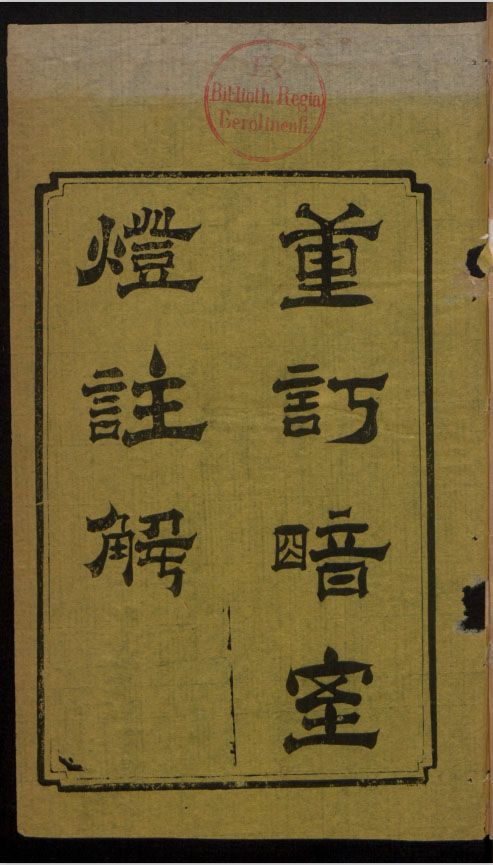 E R
Biblioth. Regia
Berolinensi.
重訂暗室
燈註解